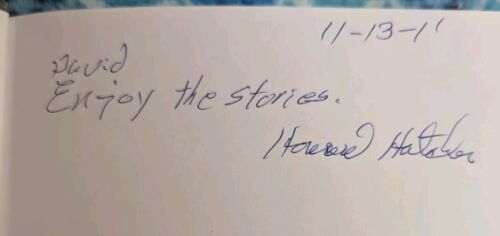 11-13-11
David
Enjoy the stories.
Howard